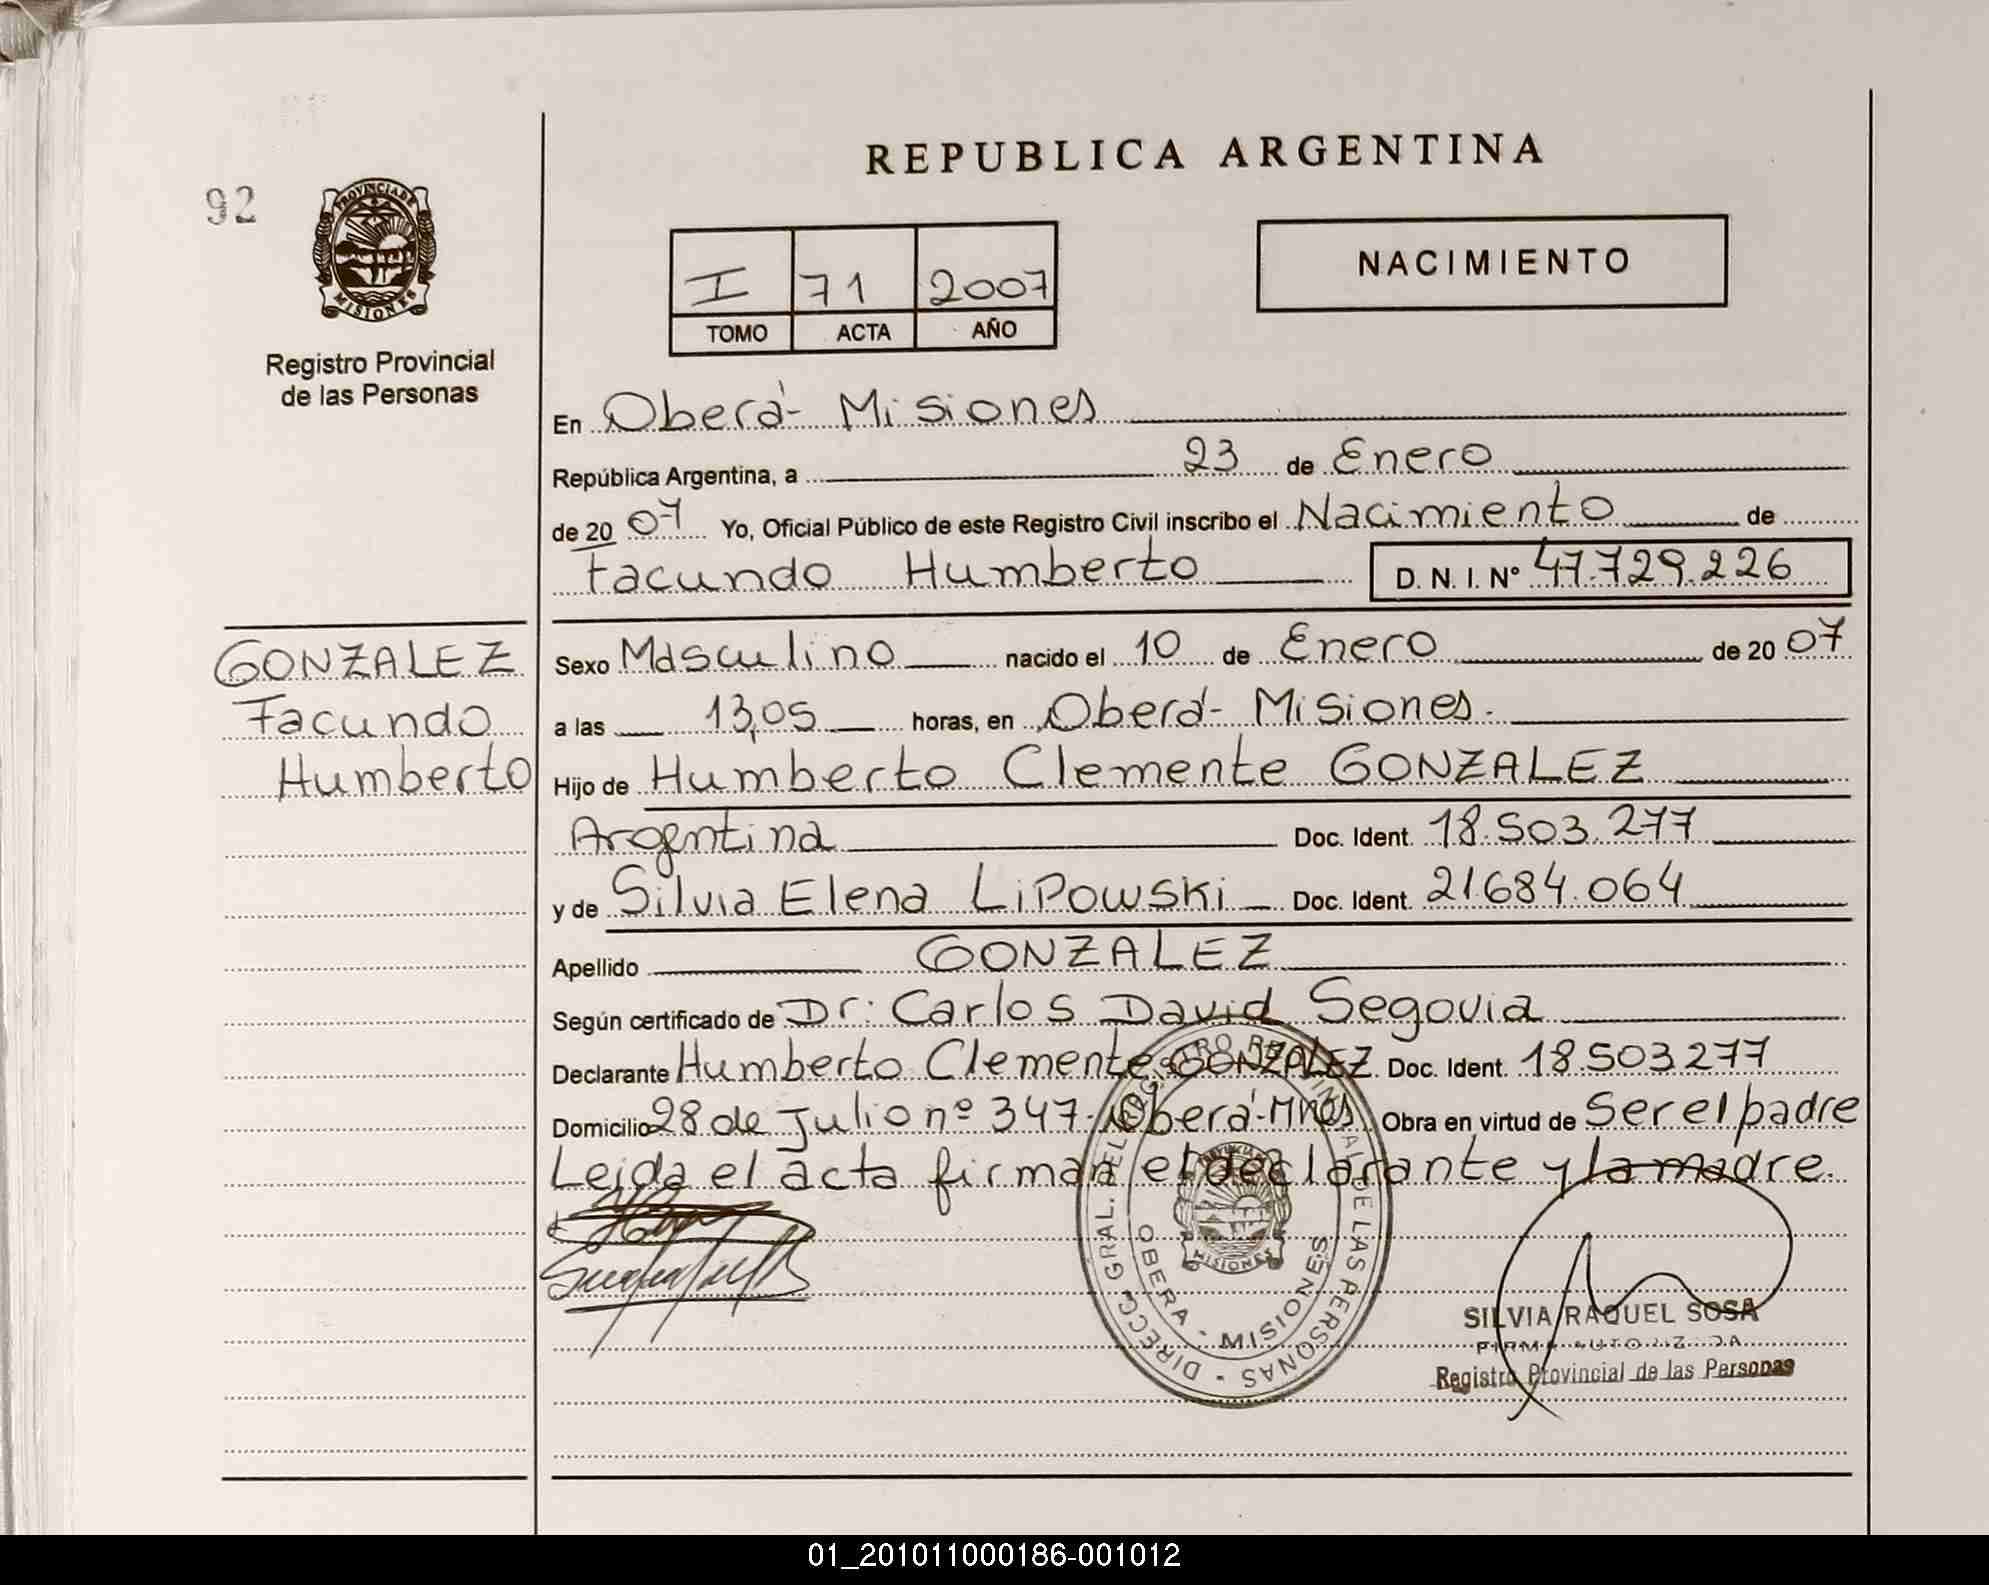 92
PROVINCIA DE
MISIONES
Registro Provincial
de las Personas
GONZALEZ
Facundo
Humberto
REPUBLICA ARGENTINA
I 71 2007
TOMO ACTA AÑO
NACIMIENTO
En Oberá - Misiones
República Argentina, a 23 de Enero
de 20 07 Yo, Oficial Público de este Registro Civil inscribo el Nacimiento de
Facundo Humberto D. N. I. Nº 47.729.226
Sexo Masculino nacido el 10 de Enero de 20 07
a las 13,05 horas, en Oberá - Misiones.
Hijo de Humberto Clemente GONZALEZ
Argentina Doc. Ident. 18.503.277
y de Silvia Elena LiPowski Doc. Ident. 21.684.064
Apellido GONZALEZ
Según certificado de Dr: Carlos David Segovia
Declarante Humberto Clemente GONZALEZ. Doc. Ident. 18.503.277
Domicilio 28 de Julio nº 347. Oberá - Mnes. Obra en virtud de Ser el padre
Leida el acta firman el declarante y la madre.
DIRECC. GRAL. DEL REGISTRO PROVINCIAL DE LAS PERSONAS -
OBERA - MISIONES
PROVINCIA DE
MISIONES
SILVIA RAQUEL SOSA
FIRMA AUTORIZADA
Registro Provincial de las Personas
01_201011000186-001012